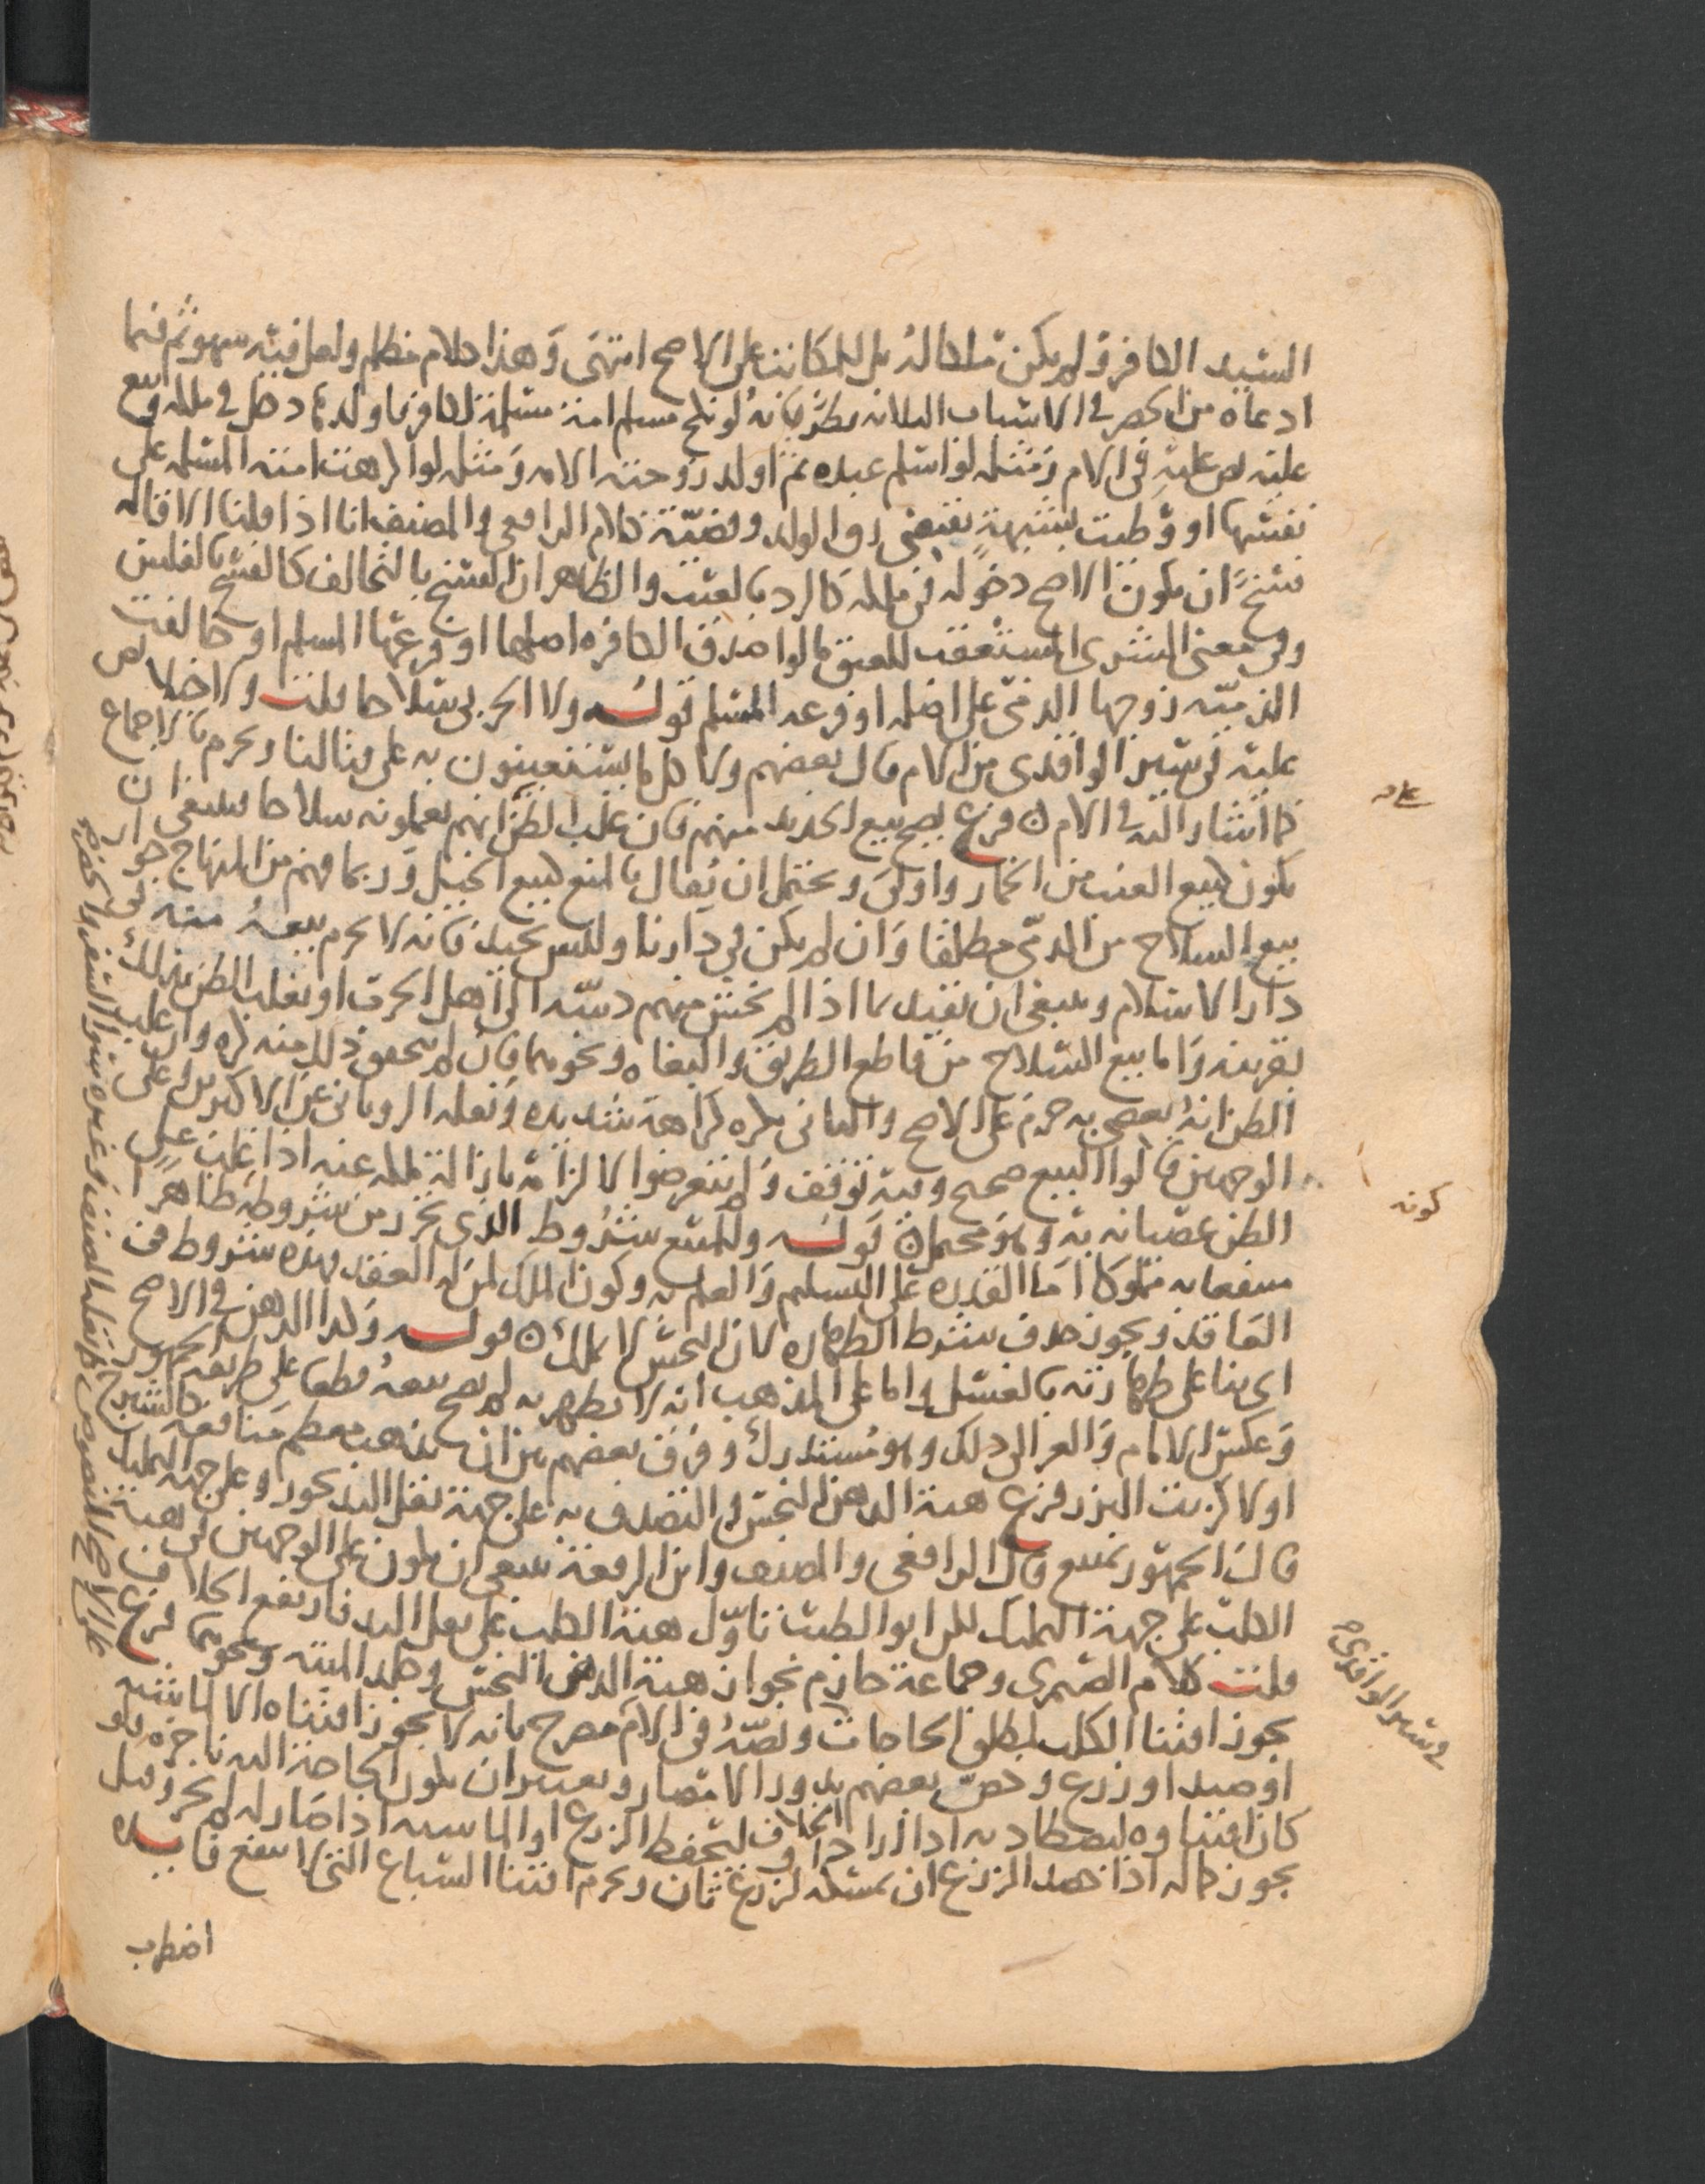 السيد الكافر ولم يكن ملكا له بل للمكاتب على الاصح انتهى وهذا كلام مظلم ولعل فيه سهو ثم فيما
ادعاه من الحصر في الاسباب الثلاثه نظر فانه لو نكح مسلم امة مسلمة لكافر فاولدها دخل في ملكه وبيع
عليه نص عليه في الام ومثله لو اسلم عبده ثم اولد زوجته الامه ومثله لو اكرهت امته المسلمه على
نفسها او وطيت بشبهة تقتضي رق الولد وقضية كلام الرافعي والمصنف انا اذا قلنا الاقاله
فسخ ان يكون الاصح دخوله في ملكه كالرد بالعيب والظاهر ان الفسخ بالتحالف كالفسخ بالفلس
وفي معنى الشرى المستعقب للعتق ما لو اصدق الكافره اصلها او فرعها المسلم او خالعت
الذميه زوجها الذمي على اصله او فرعه المسلم قوله ولا الحربي سلاحا قلت ولا خيلا نص
عليه في سير الواقدي من الام قال بعضهم وكل ما يستعينون به على قتالنا ويحرم بالاجماع
كما اشار اليه في الام فرع يصح بيع الحديد منهم فان غلب الظن انهم يعملونه سلاحا فينبغي ان
يكون كبيع العنب من الخمار واولى ويحتمل ان يقال بالمنع كبيع الخيل وربما فهم من المنهاج جواز
بيع السلاح من الذمي مطلقا وان لم يكن في دارنا وليس بجيد فانه لا يحرم بيعه منه في
دار الاسلام وينبغي ان يقيد بما اذا لم نخش منهم دسه الى اهل الحرب او يغلب الظن بذلك
بقرينه واما بيع السلاح من قاطع الطريق والبغاه ونحوهما فان لم يتحقق ذلك منه كره وان غلب
الظن انه يعصي به حرم على الاصح والثاني يكره كراهة شديده ونقله الروياني عن الاكثرين وعلى
الوجهين قالوا البيع صحيح وفيه توقف ولم يتعرضوا لالزامه بازالة ملكه عنه اذا غلب على
الظن عصيانه به وهو محتمل قوله وللمبيع شروط الذي تحرر من شروطه طاهرا
منتفعا به مملوكا اما القدره على التسليم والعلم به وكون الملك لمن له العقد فهذه شروط في
العاقد ويجوز حذف شرط الطهاره لان النجس لا يملك قوله وكذا الدهن في الاصح
اي بنا على طهارته بالغسل واما على المذهب انه لا يطهر به لم يصح بيعه قطعا على طريقه الجمهور
وعكس الامام والغزالي ذلك وهو مستدرك وفرق بعضهم بين ان يذهب معظم منافعه كالشيرج
او لا كزيت البزر فرع هبة الدهن النجس والتصدق به على جهة نقل اليد يجوز وعلى جهة التمليك
قال الجمهور يمتنع وقال الرافعي والمصنف وابن الرفعة ينبغي ان يكون على الوجهين في هبة
الكلب على جهة التمليك لكن ابو الطيب تاول هبة الكلب على نقل اليد فارتفع الخلاف
قلت كلام الصيمري وجماعة جازم بجواز هبة الدهن النجس وجلد الميته ونحوهما فرع
يجوز اقتنا الكلب لمطلق الحاجات ونصه في الام مصرح بانه لا يجوز اقتناه الا لماشيه
او صيد او زرع وخص بعضهم بدور الامصار ويعتبر ان يكون الحاجة اليه ناجزه فلو
كان اقتناوه ليصطاد به اذا اراد او ليحفظ الزرع او الماشيه اذا صار له لم يجز وقيل
يجوز كما له اذا حصد الزرع ان يمسكه لزرع ثان ويحرم اقتنا السباع التي لا ينتفع فا
اضطرب
كونه
في سير الواقدي